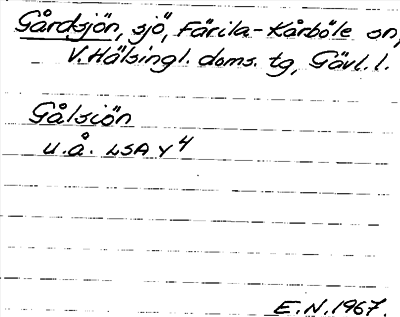 Gårdsjön, sjö, Färila-Kårböle sn,
V. Hälsingl. doms. tg, Gävl. l.
Gålsiön
u.å. LSA Y4
E.N. 1967.